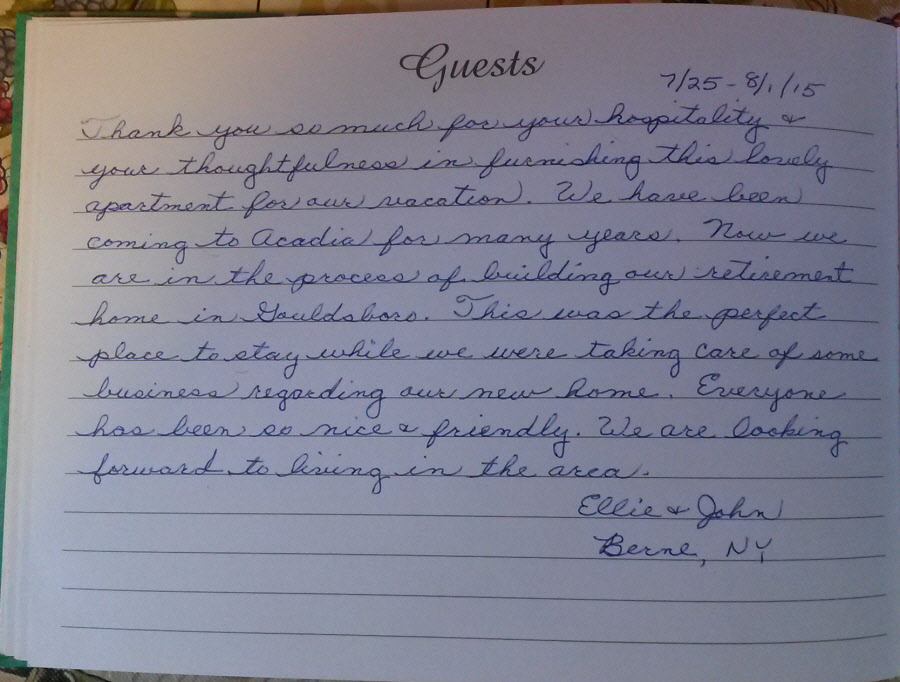 Guests
7/25 - 8/1/15
Thank you so much for your hospitality &
your thoughtfulness in furnishing this lovely
apartment for our vacation. We have been
coming to Acadia for many years. Now we
are in the process of building our retirement
home in Gouldsboro. This was the perfect
place to stay while we were taking care of some
business regarding our new home. Everyone
has been so nice & friendly. We are looking
forward to living in the area.
Ellie & John
Berne, NY